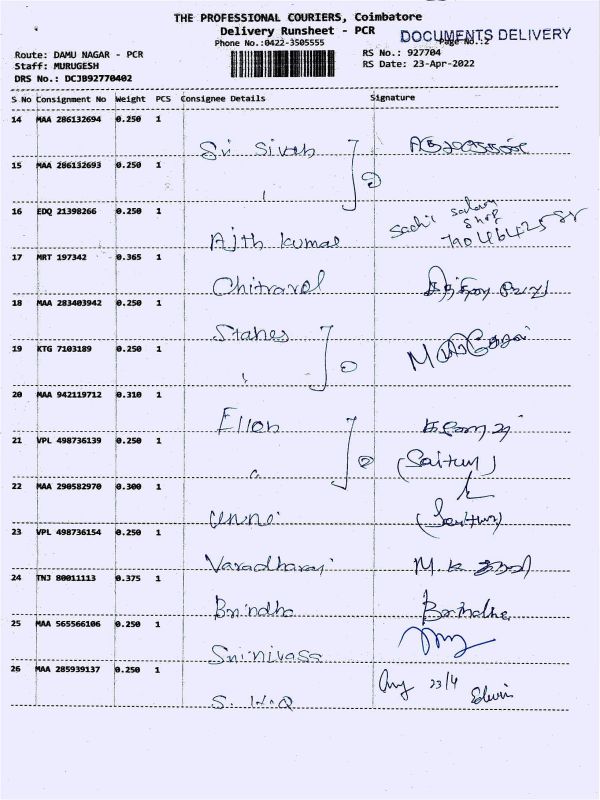 THE PROFESSIONAL COURIERS, Coimbatore
Delivery Runsheet - PCR
DOCUMENTS DELIVERY
Phone No.:0422-3505555
Page No.:2
Route: DAMU NAGAR - PCR
RS No.: 927704
Staff: MURUGESH
RS Date: 23-Apr-2022
DRS No.: DCJB92770402
S No Consignment No Weight PCS Consignee Details Signature
14 MAA 286132694 0.250 1
Sri Sivah
15 MAA 286132693 0.250 1
2
16 EDQ 21398266 0.250 1
Ajth kumar
Sachi salam shop
17 MRT 197342 0.365 1
Chitravel
18 MAA 283403942 0.250 1
Stanes
19 KTG 7103189 0.250 1
2
20 MAA 942119712 0.310 1
Ellon
21 VPL 498736139 0.250 1
2 (Saitun)
22 MAA 290582970 0.300 1
(Saitun)
23 VPL 498736154 0.250 1
Varadharaj M. K.
24 TNJ 80011113 0.375 1
Brindha Brindha
25 MAA 565566106 0.250 1
Srinivasa
26 MAA 285939137 0.250 1
23/4 Edwin
S. H.Q